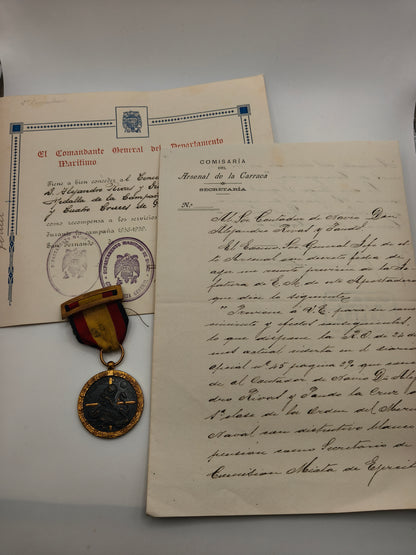 El Comandante General del Departamento
Marítimo
Tiene a bien conceder al
D. Alejandro
Medalla de la Campaña
y Cuatro Cruces de
como recompensa a los servicios
durante la campaña 1936-1939.
San Fernando
COMISARÍA
DEL
Arsenal de la Carraca
SECRETARÍA
N.º
Al Sr. Contador de Navio Don
Alejandro Rival y Pando.
El Excmo. Sr. General Jefe de es-
te Arsenal con decreto fecha de
ayer
fatura de E. M. de este Apostadero
que dice lo siguiente:
V. E. para su cono-
cimiento y efectos consiguientes,
lo que dispone la R. O. de 24 de
mes actual inserta en el diario
oficial nº 45 pagina
de al Contador de Navio Dn Alejan-
dro Rival y Pando la Cruz de
1ª clase de la Orden del Merito
Naval con distintivo blanco
pension como Secretario de
Comision Mixta de